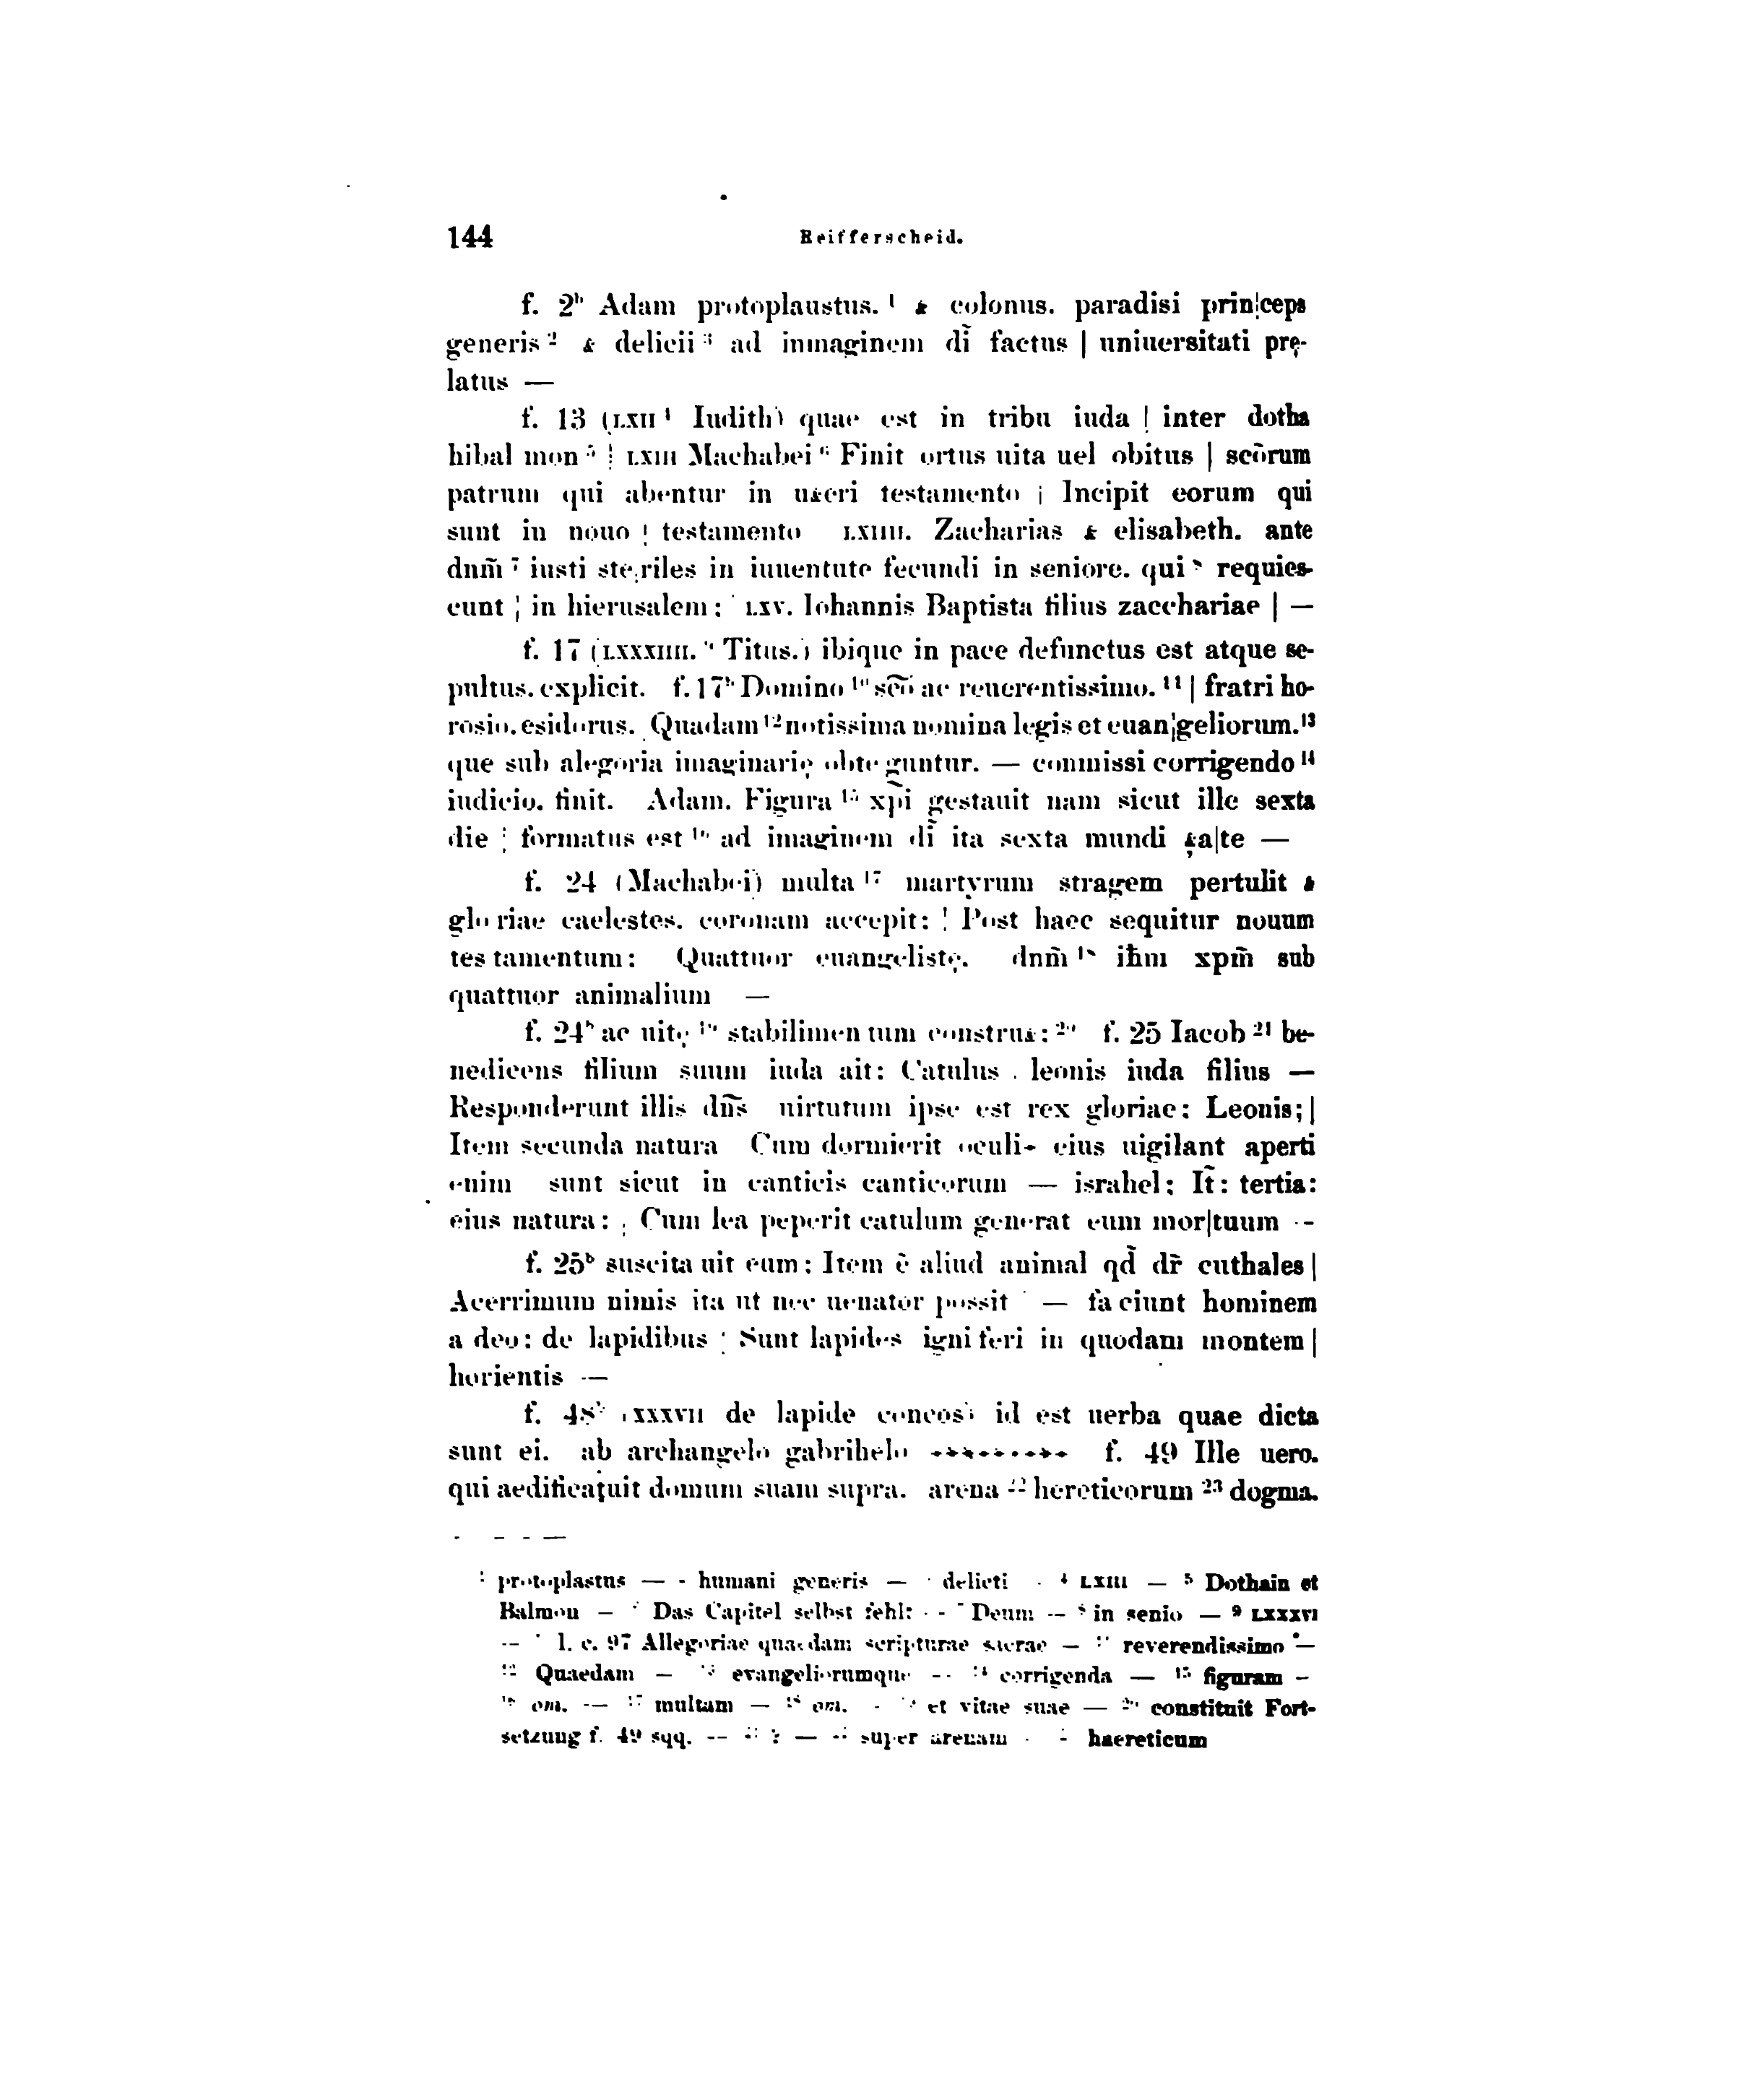 144 Reifferscheid.
f. 2ᵇ Adam protoplaustus. ¹ & colonus. paradisi prin|ceps
generis ² & delicii ³ ad inmaginem di̅ factus | uniuersitati pre̜-
latus —
f. 13 (LXII ⁴ Iudith) quae est in tribu iuda | inter dotha
hibal mon ⁵ | LXIII Machabei ⁶ Finit ortus uita uel obitus | sco̅rum
patrum qui abentur in u&eri testamento | Incipit eorum qui
sunt in nouo | testamento LXIIII. Zacharias & elisabeth. ante
dnm̅ ⁷ iusti ste|riles in iuuentute fecundi in seniore. qui ⁸ requies-
cunt | in hierusalem: LXV. Iohannis Baptista filius zacchariae | —
f. 17 (LXXXIIII. ⁹ Titus.) ibique in pace defunctus est atque se-
pultus. explicit. f. 17ᵇ Domino ¹⁰ sc̅o̅ ac reuerentissimo. ¹¹ | fratri ho-
rosio. esidorus. Quadam ¹² notissima nomina legis et euan|geliorum. ¹³
que sub alegoria imaginarie̜ obte|guntur. — commissi corrigendo ¹⁴
iudicio. finit. Adam. Figura ¹⁵ xp̅i gestauit nam sicut ille sexta
die | formatus est ¹⁶ ad imaginem di̅ ita sexta mundi &̜a|te —
f. 24 (Machabei) multa ¹⁷ martyrum stragem pertulit &
glo|riae caelestes. coronam accepit: | Post haec sequitur nouum
tes|tamentum: Quattuor euangeliste̜. dnm̅ ¹⁸ ihm̅ xpm̅ sub
quattuor animalium —
f. 24ᵇ ac uite̜ ¹⁹ stabilimen|tum constru&: ²⁰ f. 25 Iacob ²¹ be-
nedicens filium suum iuda ait: Catulus . leonis iuda filius —
Responderunt illis dn̅s uirtutum ipse est rex gloriae: Leonis; |
Item secunda natura Cum dormierit oculi eius uigilant aperti
enim sunt sicut in canticis canticorum — israhel; It̅: tertia:
eius natura: | Cum lea peperit catulum generat eum mor|tuum —
f. 25ᵇ suscita|uit eum: Item e̅ aliud animal qd̅ dr̅ cuthales |
Acerrimum nimis ita ut nec uenator possit — fa|ciunt hominem
a deo: de lapidibus | Sunt lapides igni|feri in quodam montem |
horientis —
f. 48ᵇ (XXXVII de lapide concos) id est uerba quae dicta
sunt ei. ab archangelo gabrihelo ********* f. 49 Ille uero.
qui aedificaṭuit domum suam supra. arena ²² hereticorum ²³ dogma.
¹ protoplastus — ² humani generis — ³ delicti — ⁴ LXIII — ⁵ Dothain et
Balmou — ⁶ Das Capitel selbst fehlt — ⁷ Deum — ⁸ in senio — ⁹ LXXXVI
— ¹⁰ l. c. 97 Allegoriae quaedam scripturae sacrae — ¹¹ reverendissimo —
¹² Quaedam — ¹³ evangeliorumque — ¹⁴ corrigenda — ¹⁵ figuram —
¹⁶ om. — ¹⁷ multam — ¹⁸ om. — ¹⁹ et vitae suae — ²⁰ constituit Fort-
setzung f. 49 sqq. — ²¹ ? — ²² super arenam — ²³ haereticum